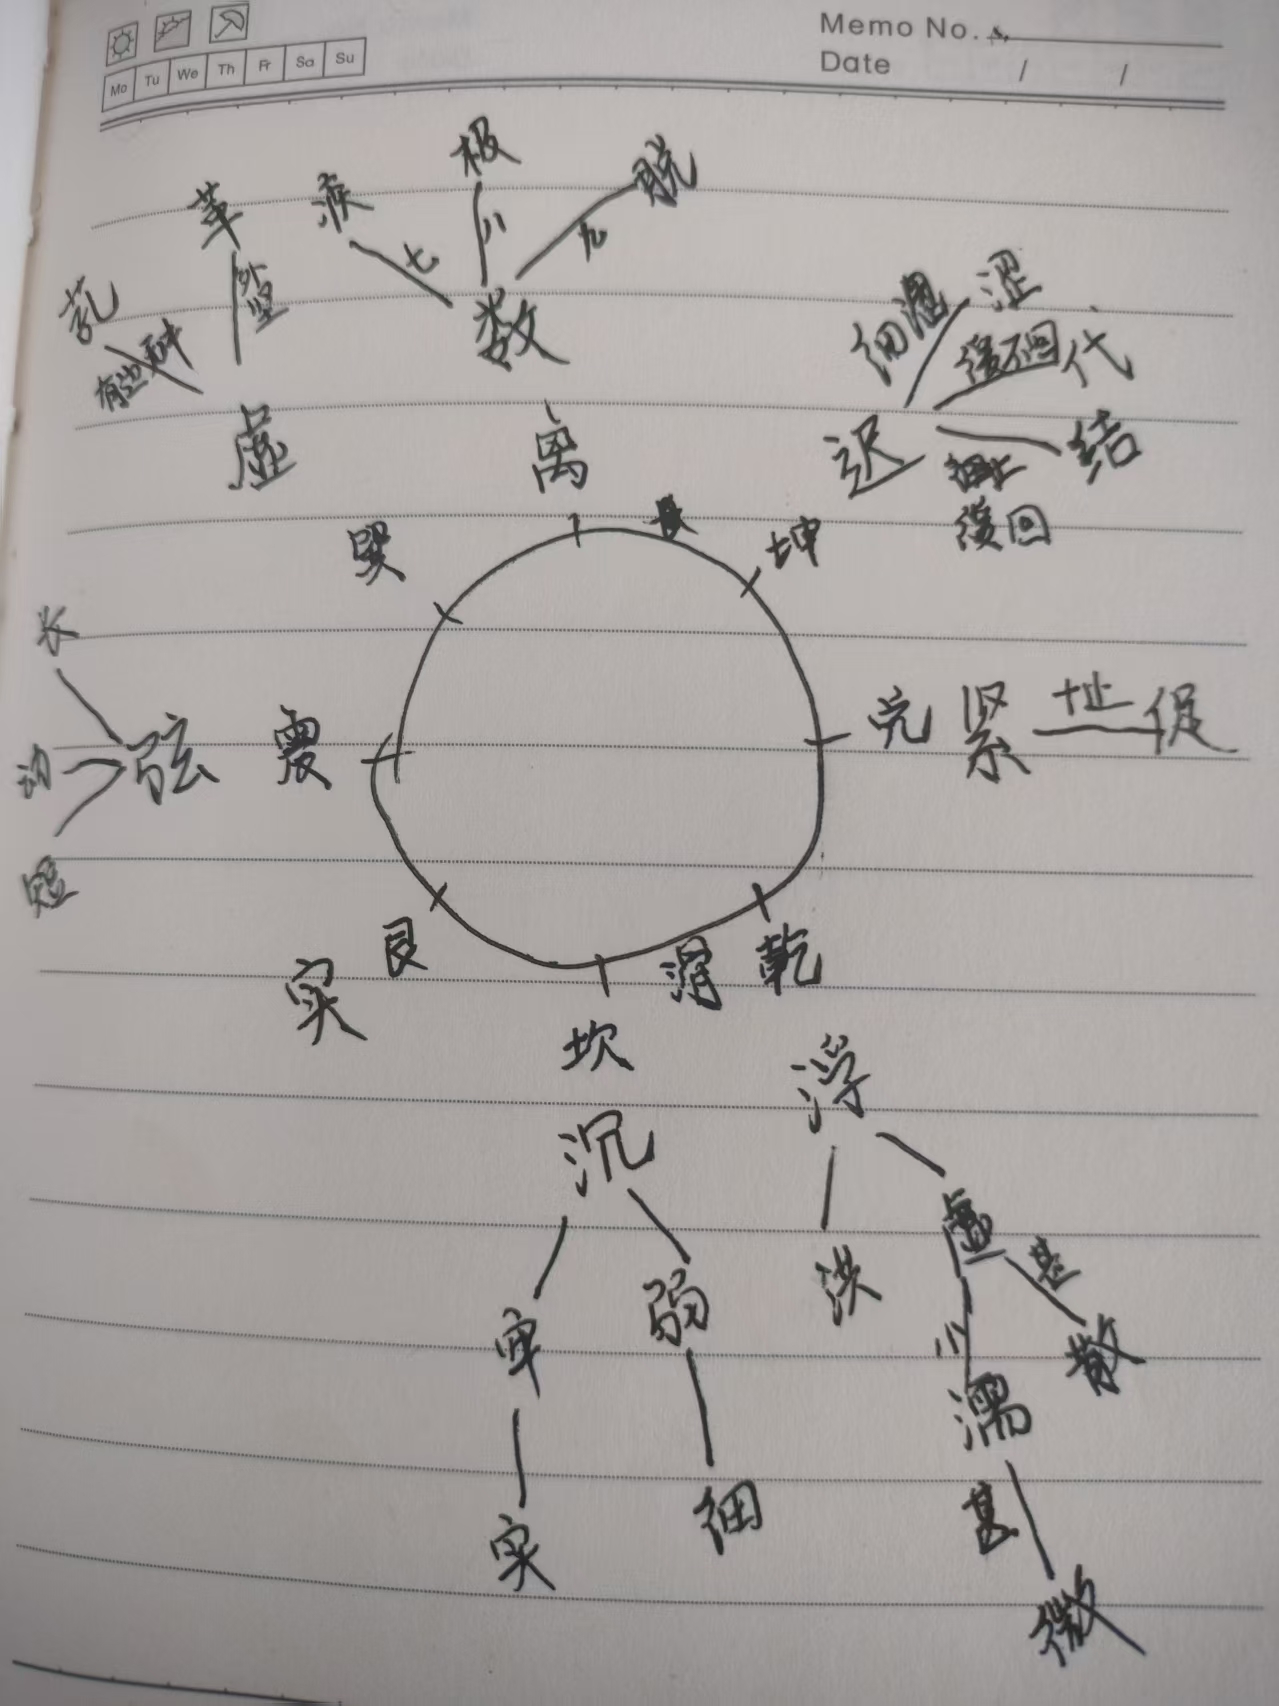 Memo No.
Mo Tu We Th Fr Sa Su
Date / /
极
脱
革
疾
七
八
九
芤
外坚
数
有边无中
虚
离
细涩
涩
缓不回
代
迟
结
缓回
巽
坤
长
动
弦
震
短
兑
紧
止
促
艮
实
滑
乾
坎
沉
浮
虚
甚
洪
弱
牢
小
散
濡
细
甚
实
微